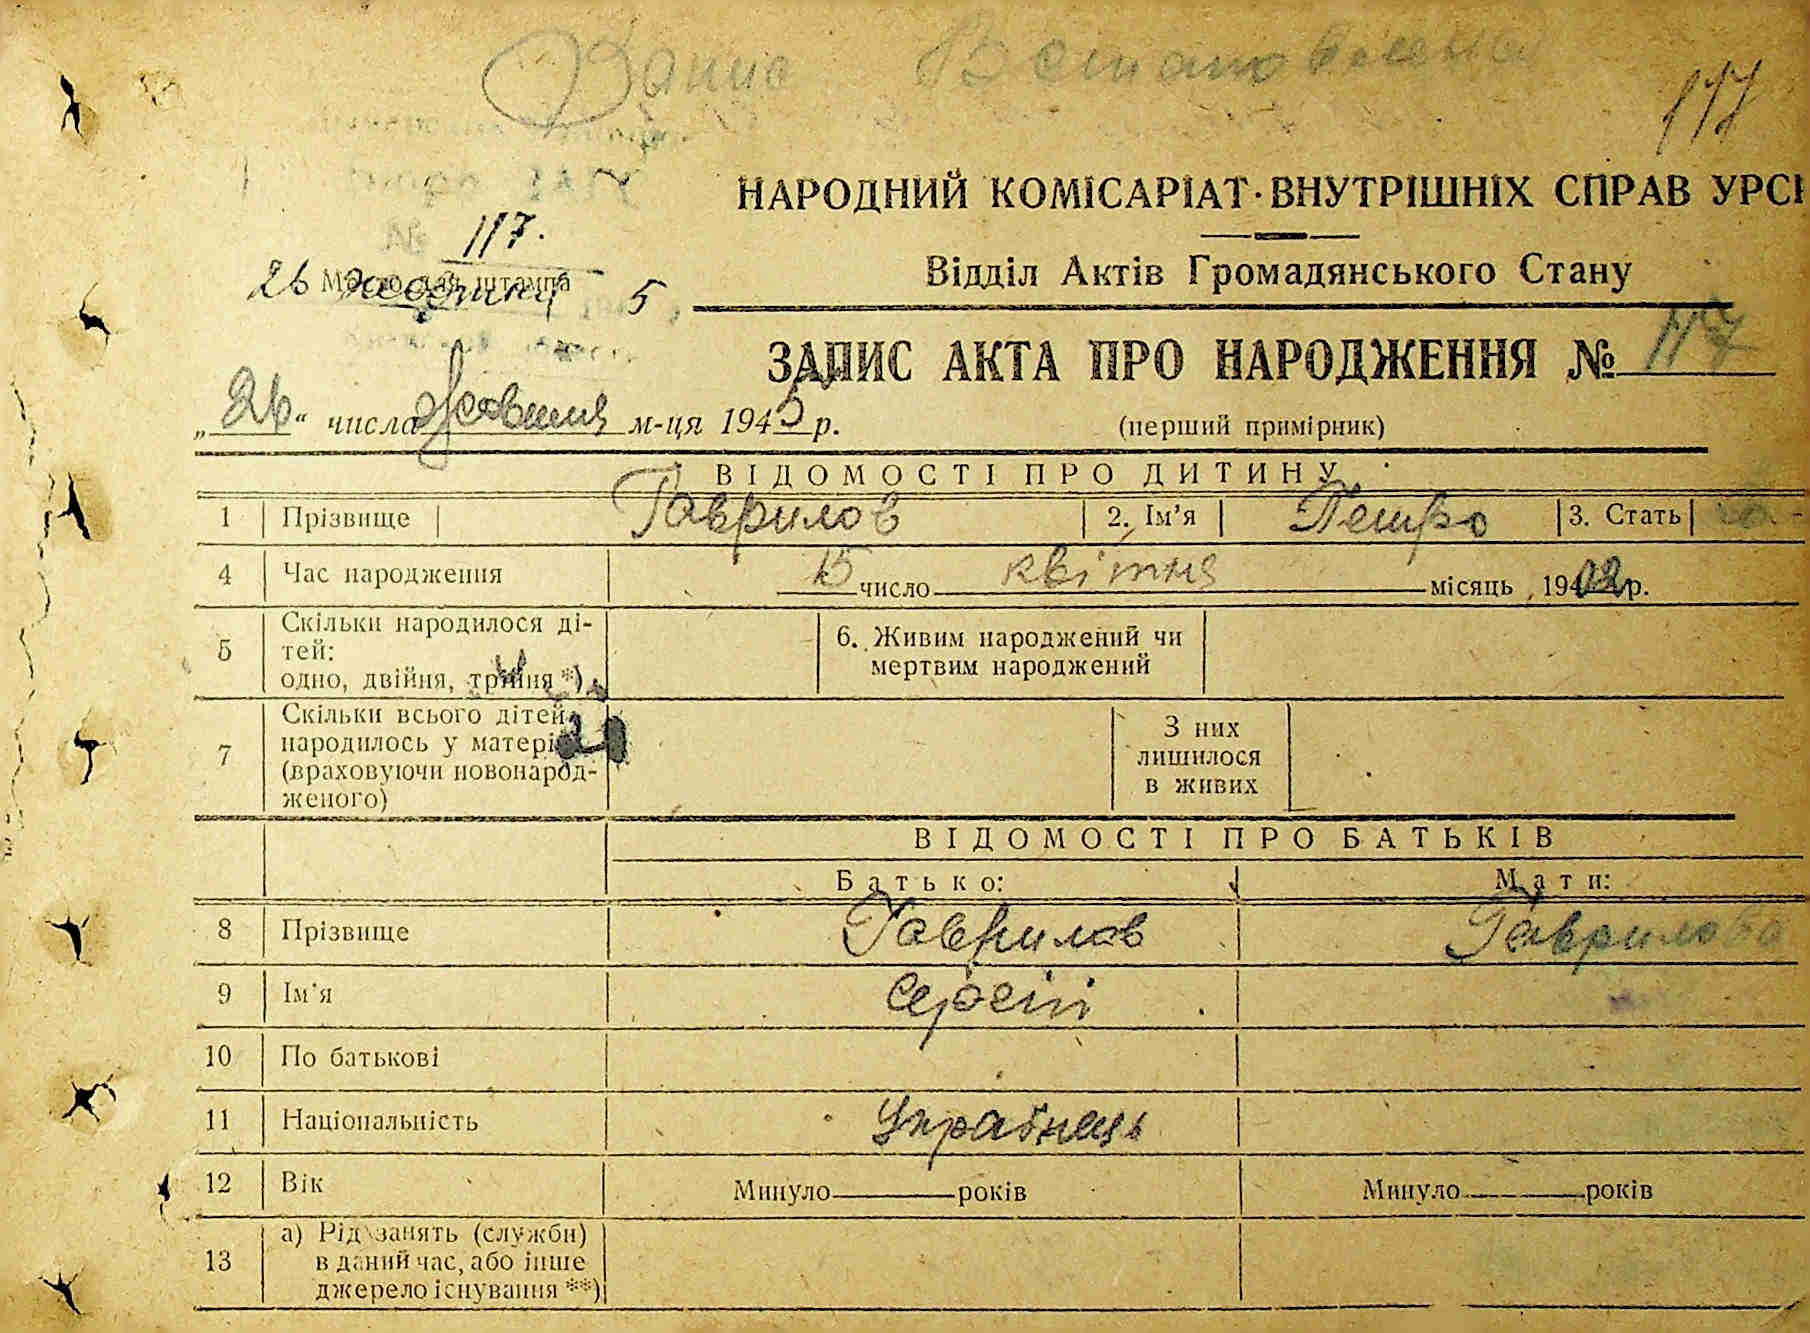 Запис Встановлена
117
НАРОДНИЙ КОМІСАРІАТ ВНУТРІШНІХ СПРАВ УРСР
117.
Відділ Актів Громадянського Стану
Місце для штампа
26 жовтня 5
ЗАПИС АКТА ПРО НАРОДЖЕННЯ № 117
„26“ числа жовтня м-ця 1945 р.
(перший примірник)
ВІДОМОСТІ ПРО ДИТИНУ
1 Прізвище Гаврилов 2. Ім'я Петро 3. Стать
4 Час народження 15 число квітня місяць 1902 р.
5 Скільки народилося ді-
тей:
одно, двійня, трійня *)
6. Живим народжений чи
мертвим народжений
7 Скільки всього дітей
народилось у матері
(враховуючи новонарод-
женого)
З них
лишилося
в живих
ВІДОМОСТІ ПРО БАТЬКІВ
Батько: Мати:
8 Прізвище Гаврилов Гаврилова
9 Ім'я Сергій
10 По батькові
11 Національність Українець
12 Вік Минуло років Минуло років
13 а) Рід занять (служби)
в даний час, або інше
джерело існування **)